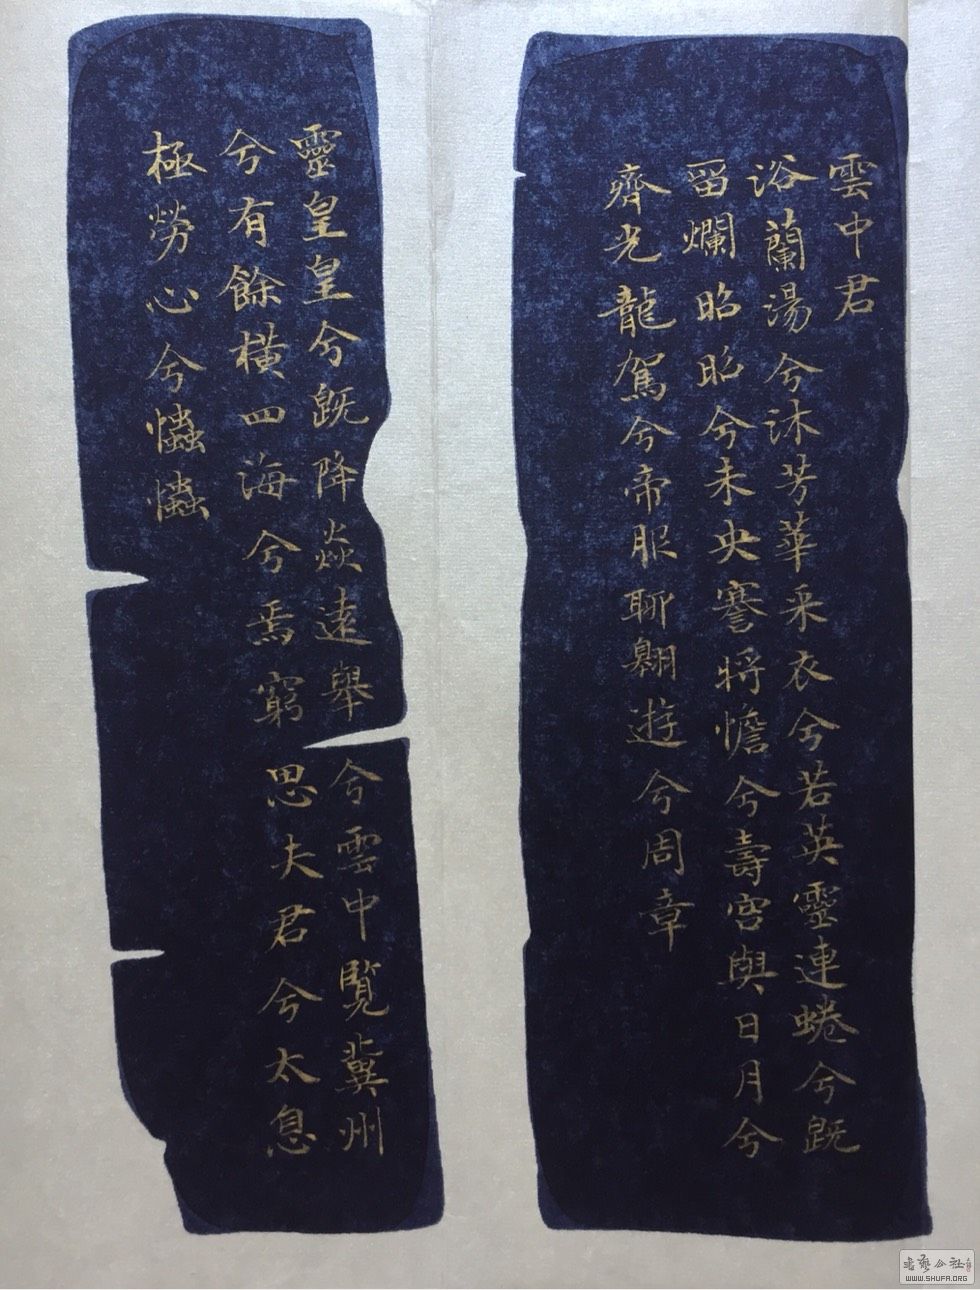 雲中君
浴蘭湯兮沐芳華采衣兮若英靈連蜷兮既
留爛昭昭兮未央謇將憺兮壽宮與日月兮
齊光龍駕兮帝服聊翱遊兮周章
靈皇皇兮既降焱遠舉兮雲中覽冀州
兮有餘橫四海兮焉窮思夫君兮太息
極勞心兮忡忡
WWW.SHUFA.ORG